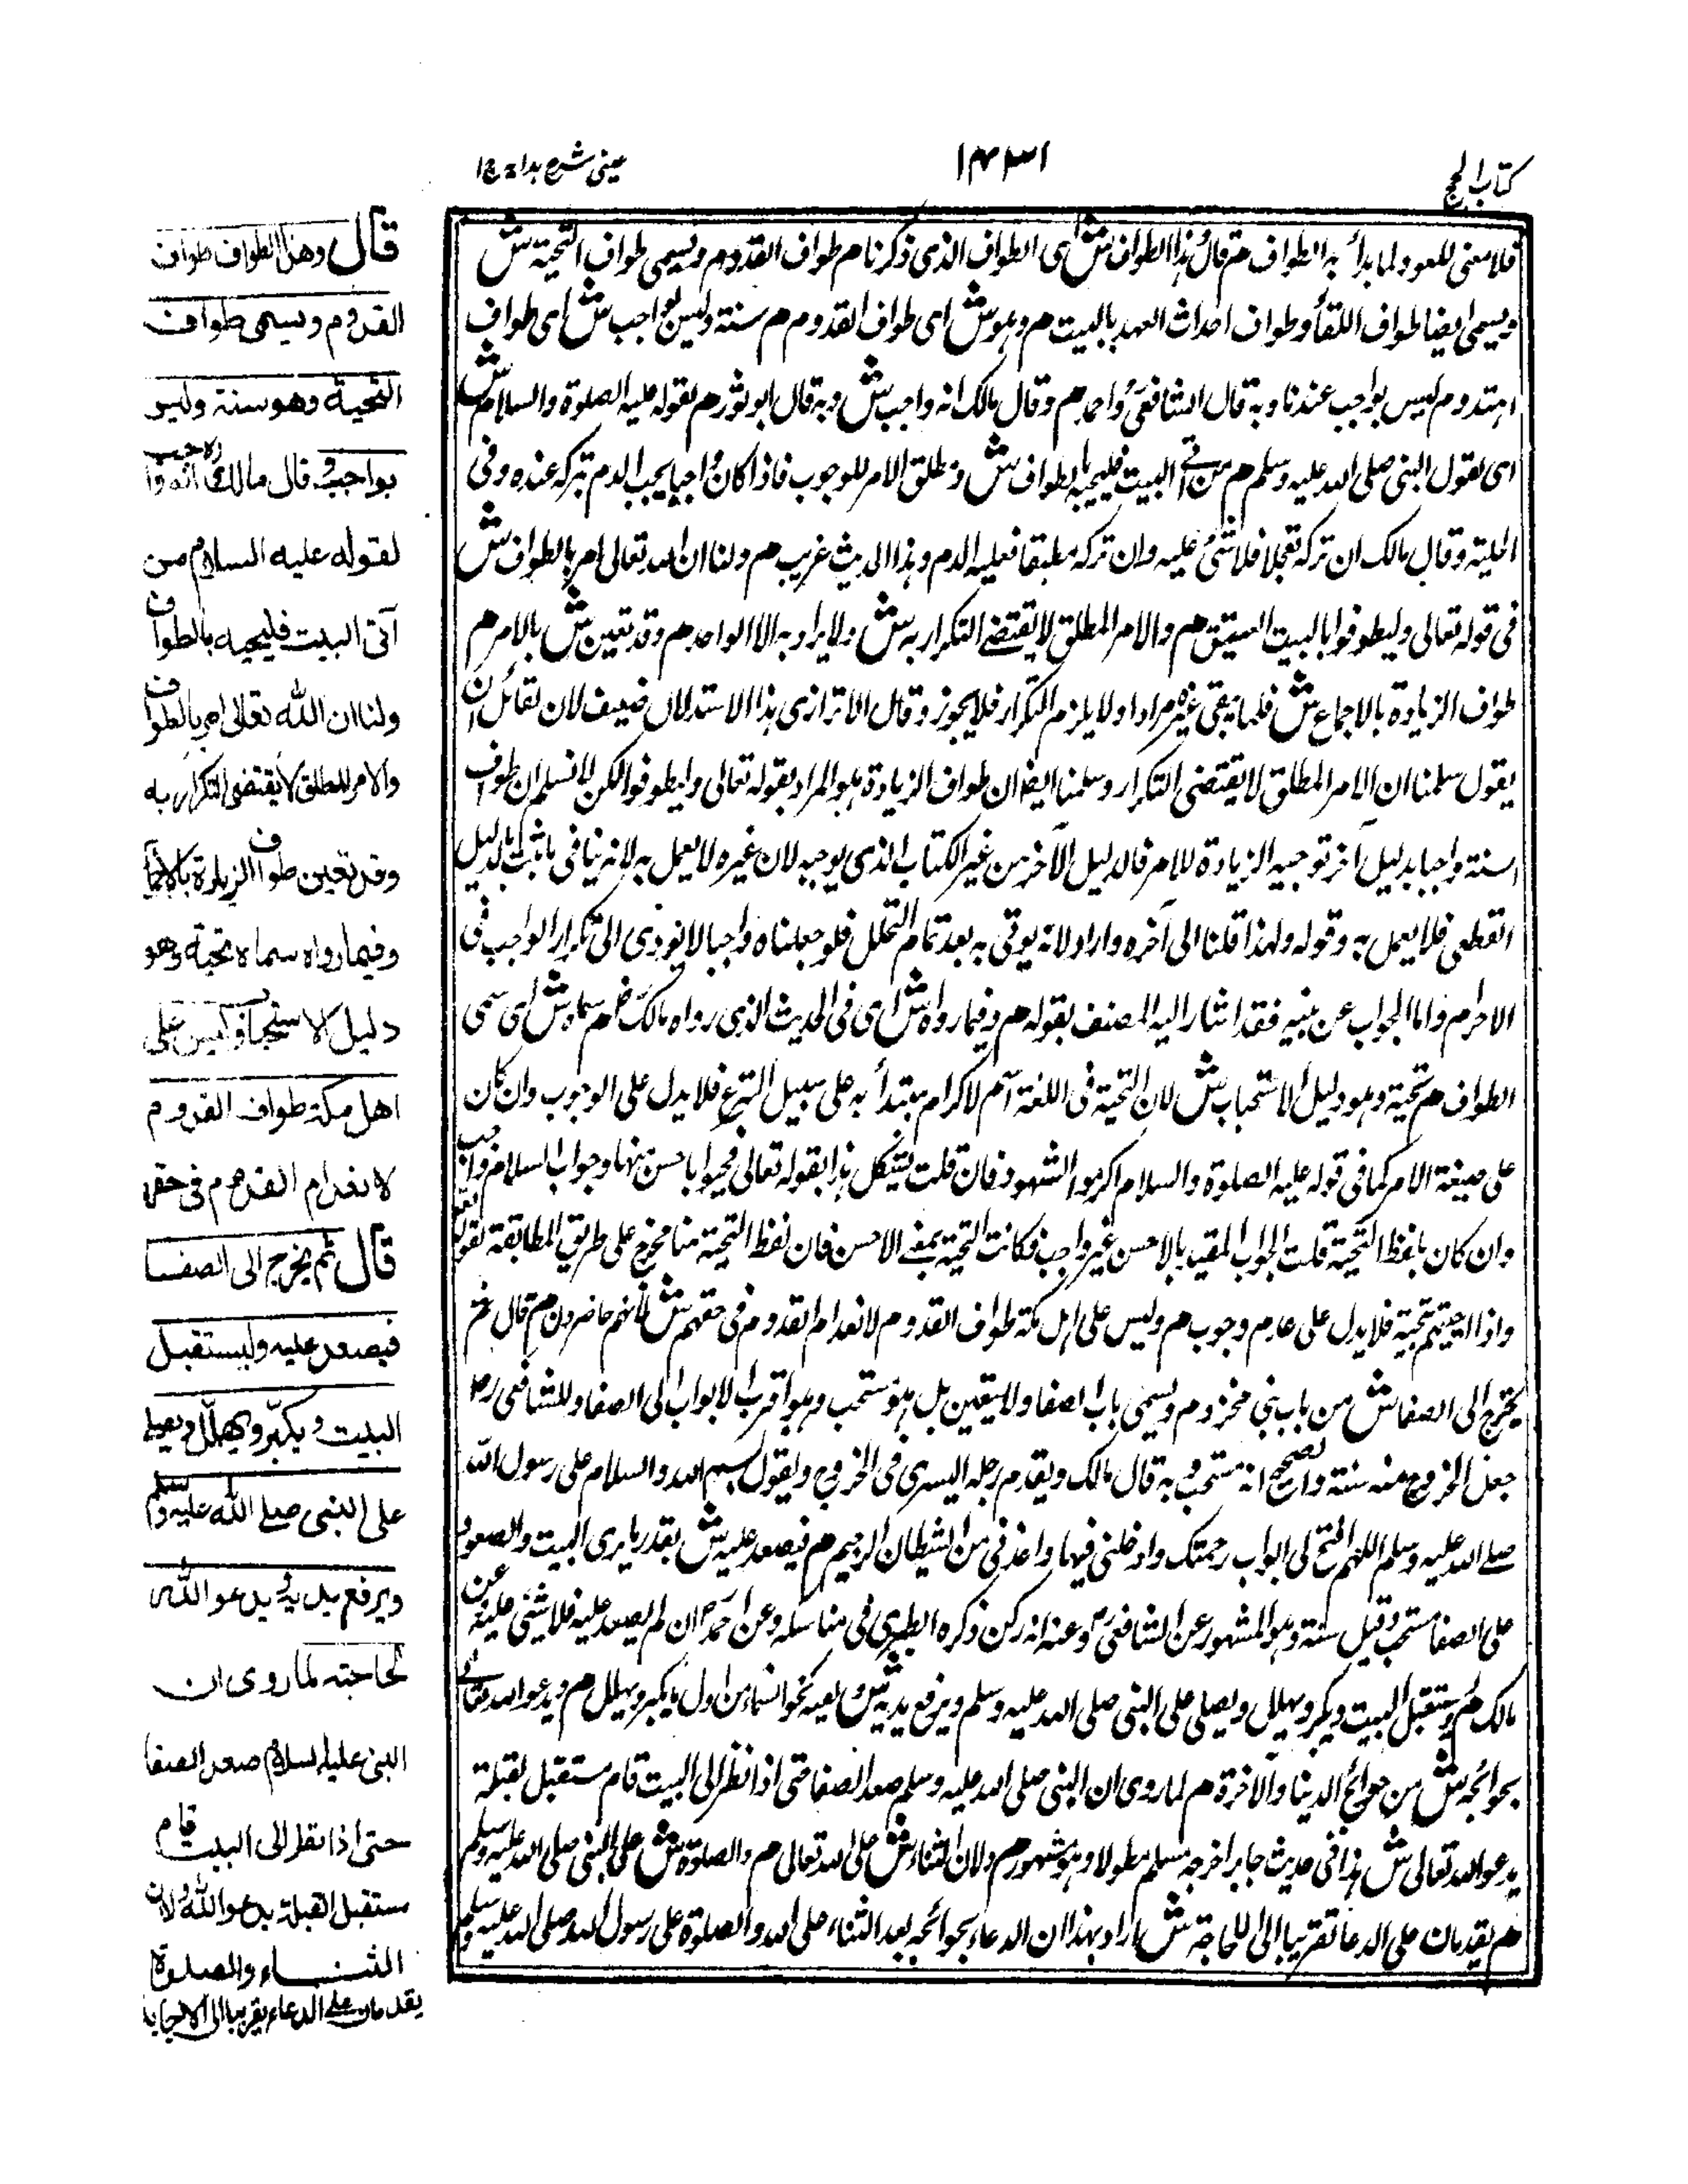 كتاب الحج
١٤٣١
عینی شرح هدایة ج ١
فلا معنى للعود ولما بدأ به الطواف م قال هذا الطواف ش اى الطواف الذى ذكرنا م طواف القدوم ويسمى طواف التحية ش
ويسمى ايضا طواف اللقاء وطواف احداث العهد بالبيت م وهو ش اى طواف القدوم م سنة وليس بواجب ش اى طواف
القدوم ليس بواجب عندنا وبه قال الشافعى واحمد م وقال مالك انه واجب ش وبه قال ابو ثور م لقوله عليه الصلوة والسلام ش
اى لقول النبى صلى الله عليه وسلم م من اتى البيت فليحيه بالطواف ش ومطلق الامر للوجوب فاذا كان واجبا يجب الدم بتركه عنده وفى
الحلية وقال مالك ان تركه تعجلا فلا شئ عليه وان تركه مطبقا فعليه الدم وهذا الحديث غريب م ولنا ان الله تعالى امر بالطواف ش
فى قوله تعالى وليطوفوا بالبيت العتيق م والامر المطلق لا يقتضى التكرار به ش ولا يراد به الا الواحد م وقد تعين ش بالامر م
طواف الزيارة بالاجماع ش فلما يبقى غيره مرادا ولا يلزم التكرار فلا يجوز وقال الاترازى هذا الاستدلال ضعيف لان لقائل ان
يقول سلمنا ان الامر المطلق لا يقتضى التكرار وسلمنا ايضا ان طواف الزيارة هو المراد بقوله تعالى وليطوفوا لكن لا نسلم ان طواف
سنة واجبا بدليل آخر توجيه الزيادة للامر فالدليل الآخر من غير الكتاب الذى يوجبه لان غيره لا يعمل به لانه ينافى ما ثبت بالدليل
القطعى فلا يعمل به وقوله ولهذا قلنا الى آخره واراد لانه يوتى به بعد تمام التحلل فلو جعلناه واجبا لا يودى الى تكرار الواجب فى
الاحرام واما الجواب عن مبنيه فقد اشار اليه المصنف بقوله م وفيما رواه ش اى فى الحديث الذى رواه مالك م سماه ش اى سمى
الطواف م تحية وهو دليل الاستحباب ش لان التحية فى اللغة اسم لاكرام يبتدأ به على سبيل التبرع فلا يدل على الوجوب وان كان
على صيغة الامر كما فى قوله عليه الصلوة والسلام اكرموا الشهود فان قلت يشكل هذا بقوله تعالى فحيوا باحسن منها وجواب السلام واجب
وان كان بلفظ التحية قلت الجواب المقيد بالاحسن غير واجب فكانت التحية بمعنى الاحسن فان لفظ التحية هنا مخرج على طريق المطابقة لقوله تعالى
واذا حييتم بتحية فلا يدل على عدم وجوب م وليس على اهل مكة طواف القدوم م لانعدام القدوم فى حقهم ش لانهم حاضرون م قال ثم
يخرج الى الصفا ش من باب بنى مخزوم ويسمى باب الصفا ولا يتعين بل هو مستحب وهو اقرب الابواب الى الصفا وللشافعى رح
جعل الخروج منه سنة والصحيح انه مستحب وبه قال مالك ويقدم رجله اليسرى فى الخروج ويقول بسم الله والسلام على رسول الله
صلى الله عليه وسلم اللهم افتح لى ابواب رحمتك وادخلنى فيها واعذنى من الشيطان الرجيم م فيصعد عليه ش بقدر ما يرى البيت والصعود
على الصفا مستحب وقيل سنة وهو المشهور عن الشافعى وعنه انه ركن ذكره الطبرى فى مناسكه وعن احمد ان لم يصعد عليه فلا شئ عليه عن
مالك م ويستقبل البيت ويكبر ويهلل ويصلى على النبى صلى الله عليه وسلم ويرفع يديه ش يعنيه نحو السماء من اول ما يكبر ويهلل م ويدعو الله تعالى
بحوائجه ش من حوائج الدنيا والآخرة م لما روى ان النبى صلى الله عليه وسلم صعد الصفا حتى اذا نظر الى البيت قام مستقبل القبلة
يدعو الله تعالى ش هذا فى حديث جابر اخرجه مسلم مطولا وهو مشهور م ولان الثناء ش على الله تعالى م والصلوة ش على النبى صلى الله عليه وسلم
م يقدمان على الدعا تقريبا الى الاجابة ش اراد بهذا ان الدعاء بحوائجه بعد الثناء على الله والصلوة على رسول الله صلى الله عليه وسلم
قال وهذا الطواف طواف
القدوم ويسمى طواف
التحية وهو سنة وليس
بواجب وقال مالك رح انه واجب
لقوله عليه السلام من
آتى البيت فليحيه بالطواف
ولنا ان الله تعالى امر بالطواف
والامر المطلق لا يقتضى التكرار به
وقد تعين طواف الزيارة بالاجماع
وفيما رواه سماه تحية وهو
دليل الاستحباب وليس على
اهل مكة طواف القدوم
لانعدام القدوم فى حقهم
قال ثم يخرج الى الصفا
فيصعد عليه ويستقبل
البيت ويكبّر ويهلّل ويصلى
على النبى صلى الله عليه وسلم
ويرفع يديه ويدعو الله
لحاجته لما روى ان
النبى عليه السلام صعد الصفا
حتى اذا نظر الى البيت قام
مستقبل القبلة يدعو الله ولان
الثناء والصلوة
يقدمان على الدعاء تقريبا الى الاجابة